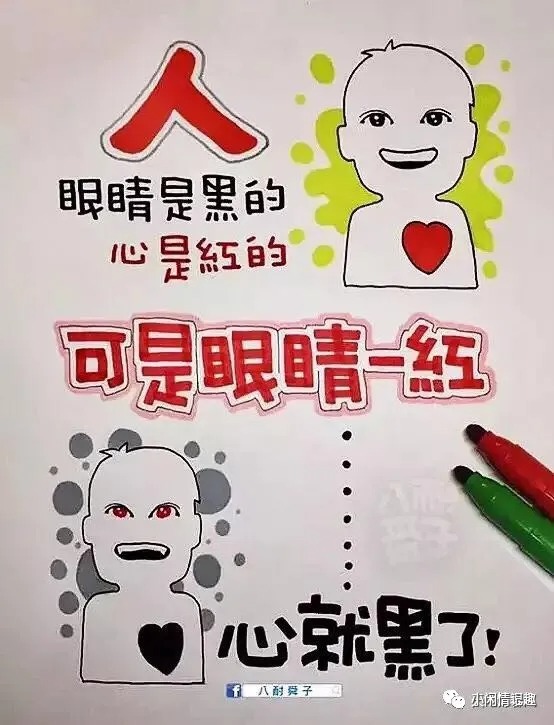 人
眼睛是黑的
心是紅的
可是眼睛一紅
心就黑了!
f 八耐舜子
小闲情趣